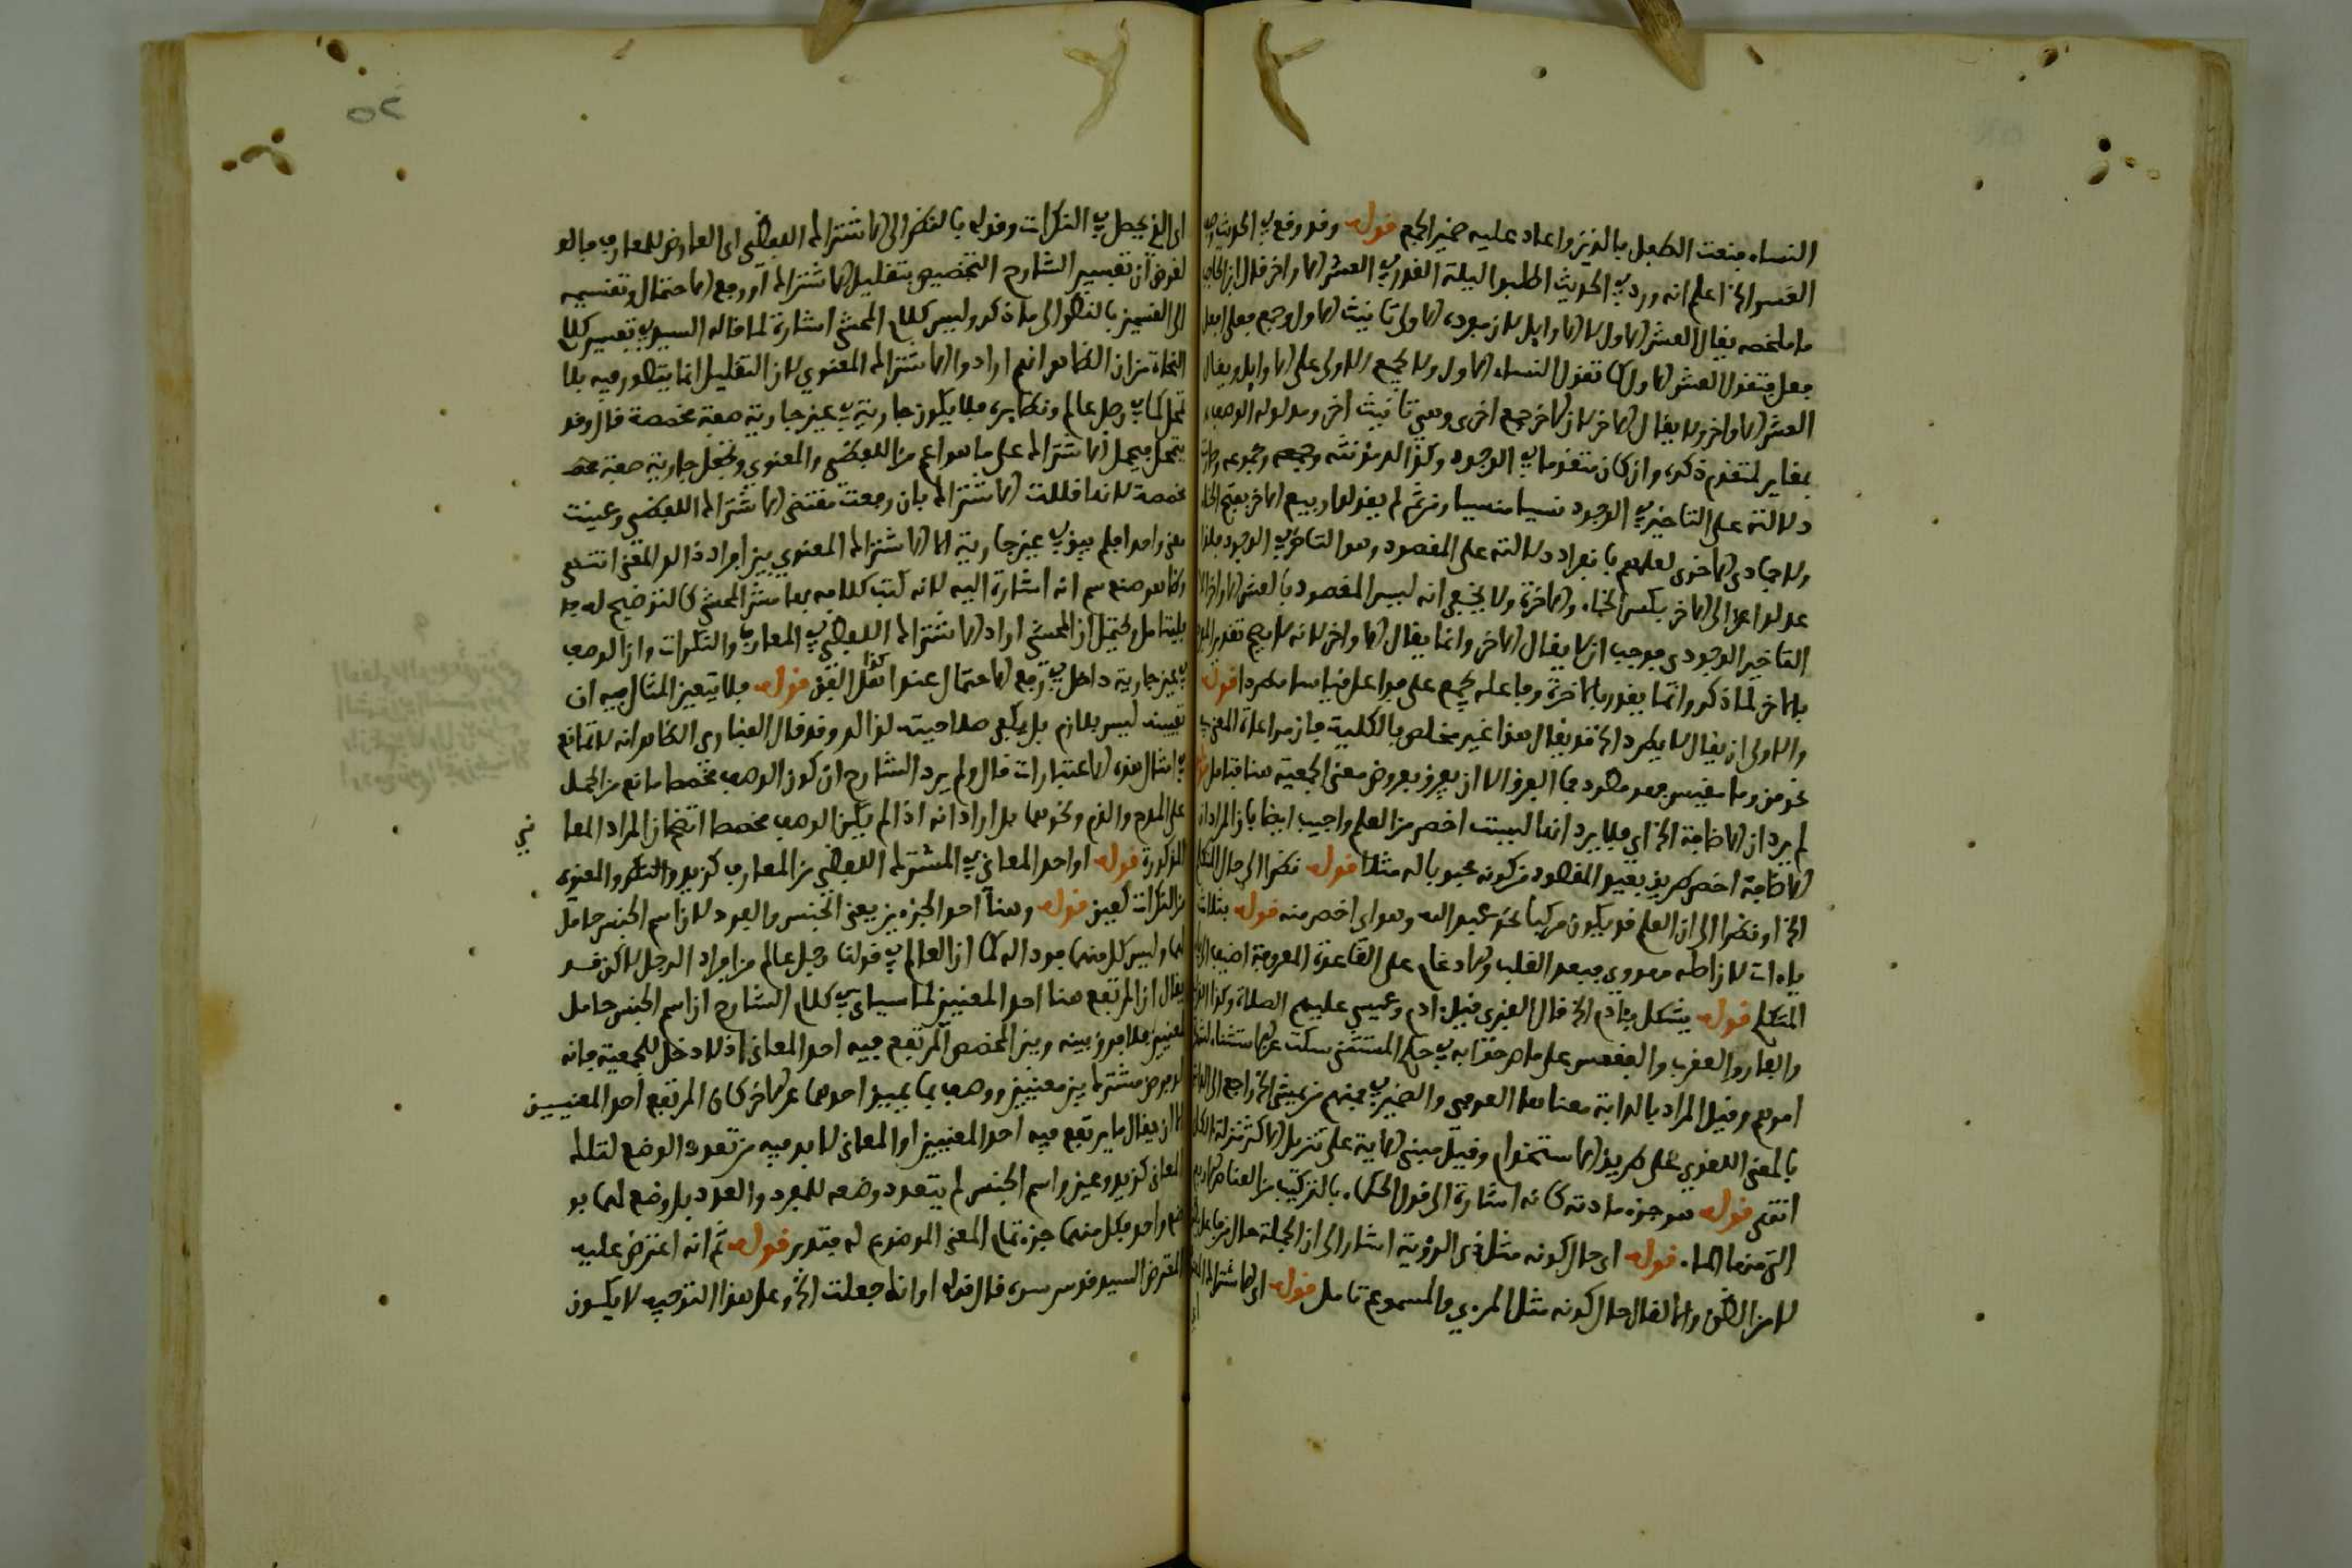 النساء فنعت الطفل بالذين واعاد عليه ضمير الجمع قوله وقد وقع في الحديث وصف
العشر الخ اعلم انه ورد في الحديث اطلبوا ليلة القدر في العشر الاواخر قال ابن الحاجب
ما ملخصه يقال العشر الاول لا الاوايل لان مفرده الاولى تانيث الاول وجمع فعلى افعل
فعل فتقول العشر الاول كما تقول النساء الاول ولا يجمع الاولى على الاوايل ويقال
العشر الاواخر ولا يقال الاخر لان الاخر جمع اخرى وهي تانيث اخر ومدلوله الوصف
بمغاير لمتقدم ذكره وان كان متقدما في الوجود وكذا لد مؤنثه وجمعه ومجموعه
دلالته على التاخير في الوجود نسيا منسيا ومن ثم لم يقولوا ربيع الاخر بفتح الخاء
ولا جمادى الاخرى لعلمهم بانفراد دلالته على المقصود وهو التاخر في الوجود فلذا
عدلوا الى الاخر بكسر الخاء والاخرة ولا يخفى انه ليس المقصود بالعشر الاواخر الا
التاخير الوجودي فوجب ان لا يقال الاخر وانما يقال الاواخر لانه لا يصح تقدير
بالاخر لما ذكر وانما يقدر بالاخرة وفاعلة يجمع على فواعل قياسا مطردا قوله
والاولى ان يقال لا يطرد الخ قد يقال هذا غير مخلص بالكلية فان مراعاة المعنى في
نحو من وما مقيس فهو مطرد فما الفرق الا ان يفرق بعروض معنى الجمعية هنا فتامل
لم يرد ان الاضافة الخ اي فلا يرد انها ليست اخص من العلم واجيب ايضا بان المراد ان
الاضافة اخص طريق يفيد المقصود من كونه محبوبا له مثلا قوله نظرا الى حال المتكلم
الخ او نظرا الى ان العلم قد يكون مركبا نحو عبد الله وهو اي اخصر منه قوله بثلاث
ياءات لان اصله مهدوي فبعد القلب والادغام على القاعدة المعروفة اضيف الى ياء
المتكلم قوله يشكل بادم الخ قال الغزي قيل ادم وعيسى عليهم الصلاة وكذا
والفار والعقرب والقفعس على ما صرحوا به في حكم المستثنى سكت عن الاستثناء
امرهم وقيل المراد بالدابة معناها العرفي والضمير في فمنهم من يمشي الخ راجع الى الدابة
بالمعنى اللغوي على طريق الاستخدام وقيل مبنى الاية على تنزيل الاكثر منزلة الكل
انتهى قوله هو جزء مادته كانه اشارة الى قول الحكماء بالتركيب من العناصر الاربع
التي منها الماء قوله اي حال كونه مثل في الرؤية اشار الى ان الجملة حال من فاعل
لا من الظن وانما لقال حال كونه مثل المرءي والمسموع تامل قوله اي الاشتراك
اي الذي يحصل في النكرات وقوله بالنظر الى الاشتراك اللفظي اي العارض للمعارف فالعد
لغرض ان تفسير الشارح التخصيص بتقليل الاشتراك او رفع الاحتمال وتقسيمه
الى القسمين بالنظر الى ما ذكر وليس كلام المحشي اشارة لما قاله السيد في تفسير كلام
النحاة من ان الظاهر انهم ارادوا الاشتراك المعنوي لان التقليل انما يتصور فيه بلا
تمحل كما في رجل عالم ونظايره فلا يكون جارية في عين جارية صفة مخصصة قال وقد
يتمحل فيحمل الاشتراك على ما هو اعم من اللفظي والمعنوي وتجعل جارية صفة
مخصصة لانها قللت الاشتراك بان رفعت مقتضى الاشتراك اللفظي وعينت
معنى واحدا فلم يبق في عين جارية الا الاشتراك المعنوي بين افراد ذلك المعنى انتهى
وظاهر صنيع سم انه اشارة اليه لانه كتب كلامه بهامش المحشي كالتوضيح له
فليتامل ويحتمل ان المحشي اراد الاشتراك اللفظي في المعارف والنكرات وان الوصف
في عين جارية داخل في رفع الاحتمال عنده كذا نقل القن قوله فلا يتعين المثال فيه ان
تعيينه ليس بلازم بل يكفي صلاحيته لذلك وقد قال الفناري الظاهر انه لا تمانع
في امثال هذه الاعتبارات قال ولم يرد الشارح ان كون الوصف مخصصا مانع من الحمل
على المدح والذم ونحوهما بل اراد انه اذا لم يكن الوصف مخصصا اتضح ان المراد المعا
ني
المذكورة قوله او احد المعاني في المشترك اللفظي من المعارف كزيد والنكر والمعنوي
من النكرات كعين قوله وهنا احد الجزءين يعني الجنس والعدد لان اسم الجنس حامل
لهما وليس كل منهما مودا له كما ان العالم في قولنا رجل عالم من افراد الرجل لاكن قد
يقال ان المرتفع هنا احد المعنيين لما سياتي في كلام الشارح ان اسم الجنس حامل
لمعنيين فلا فرق بينه وبين المخصص المرتفع فيه احد المعاني اذ لا دخل للجمعية فانه
لو فرض مشترك بين معنيين ووصف بما يميز احدهما عن الاخر كان المرتفع احد المعنيين
الا ان يقال ما يرتفع فيه احد المعنيين او المعاني لا بد فيه من تعدد الوضع لتلك
المعاني كزيد وعين واسم الجنس لم يتعدد وضعه للمفرد والعدد بل وضع لهما بو
ضع واحد فكل منهما جزء تمام المعنى الموضوع له فتدبر قوله ثم انه اعترض عليه
المعترض السيد قدس سره قال قوله او انها جعلت الخ وعلى هذا التوجيه لا يكون